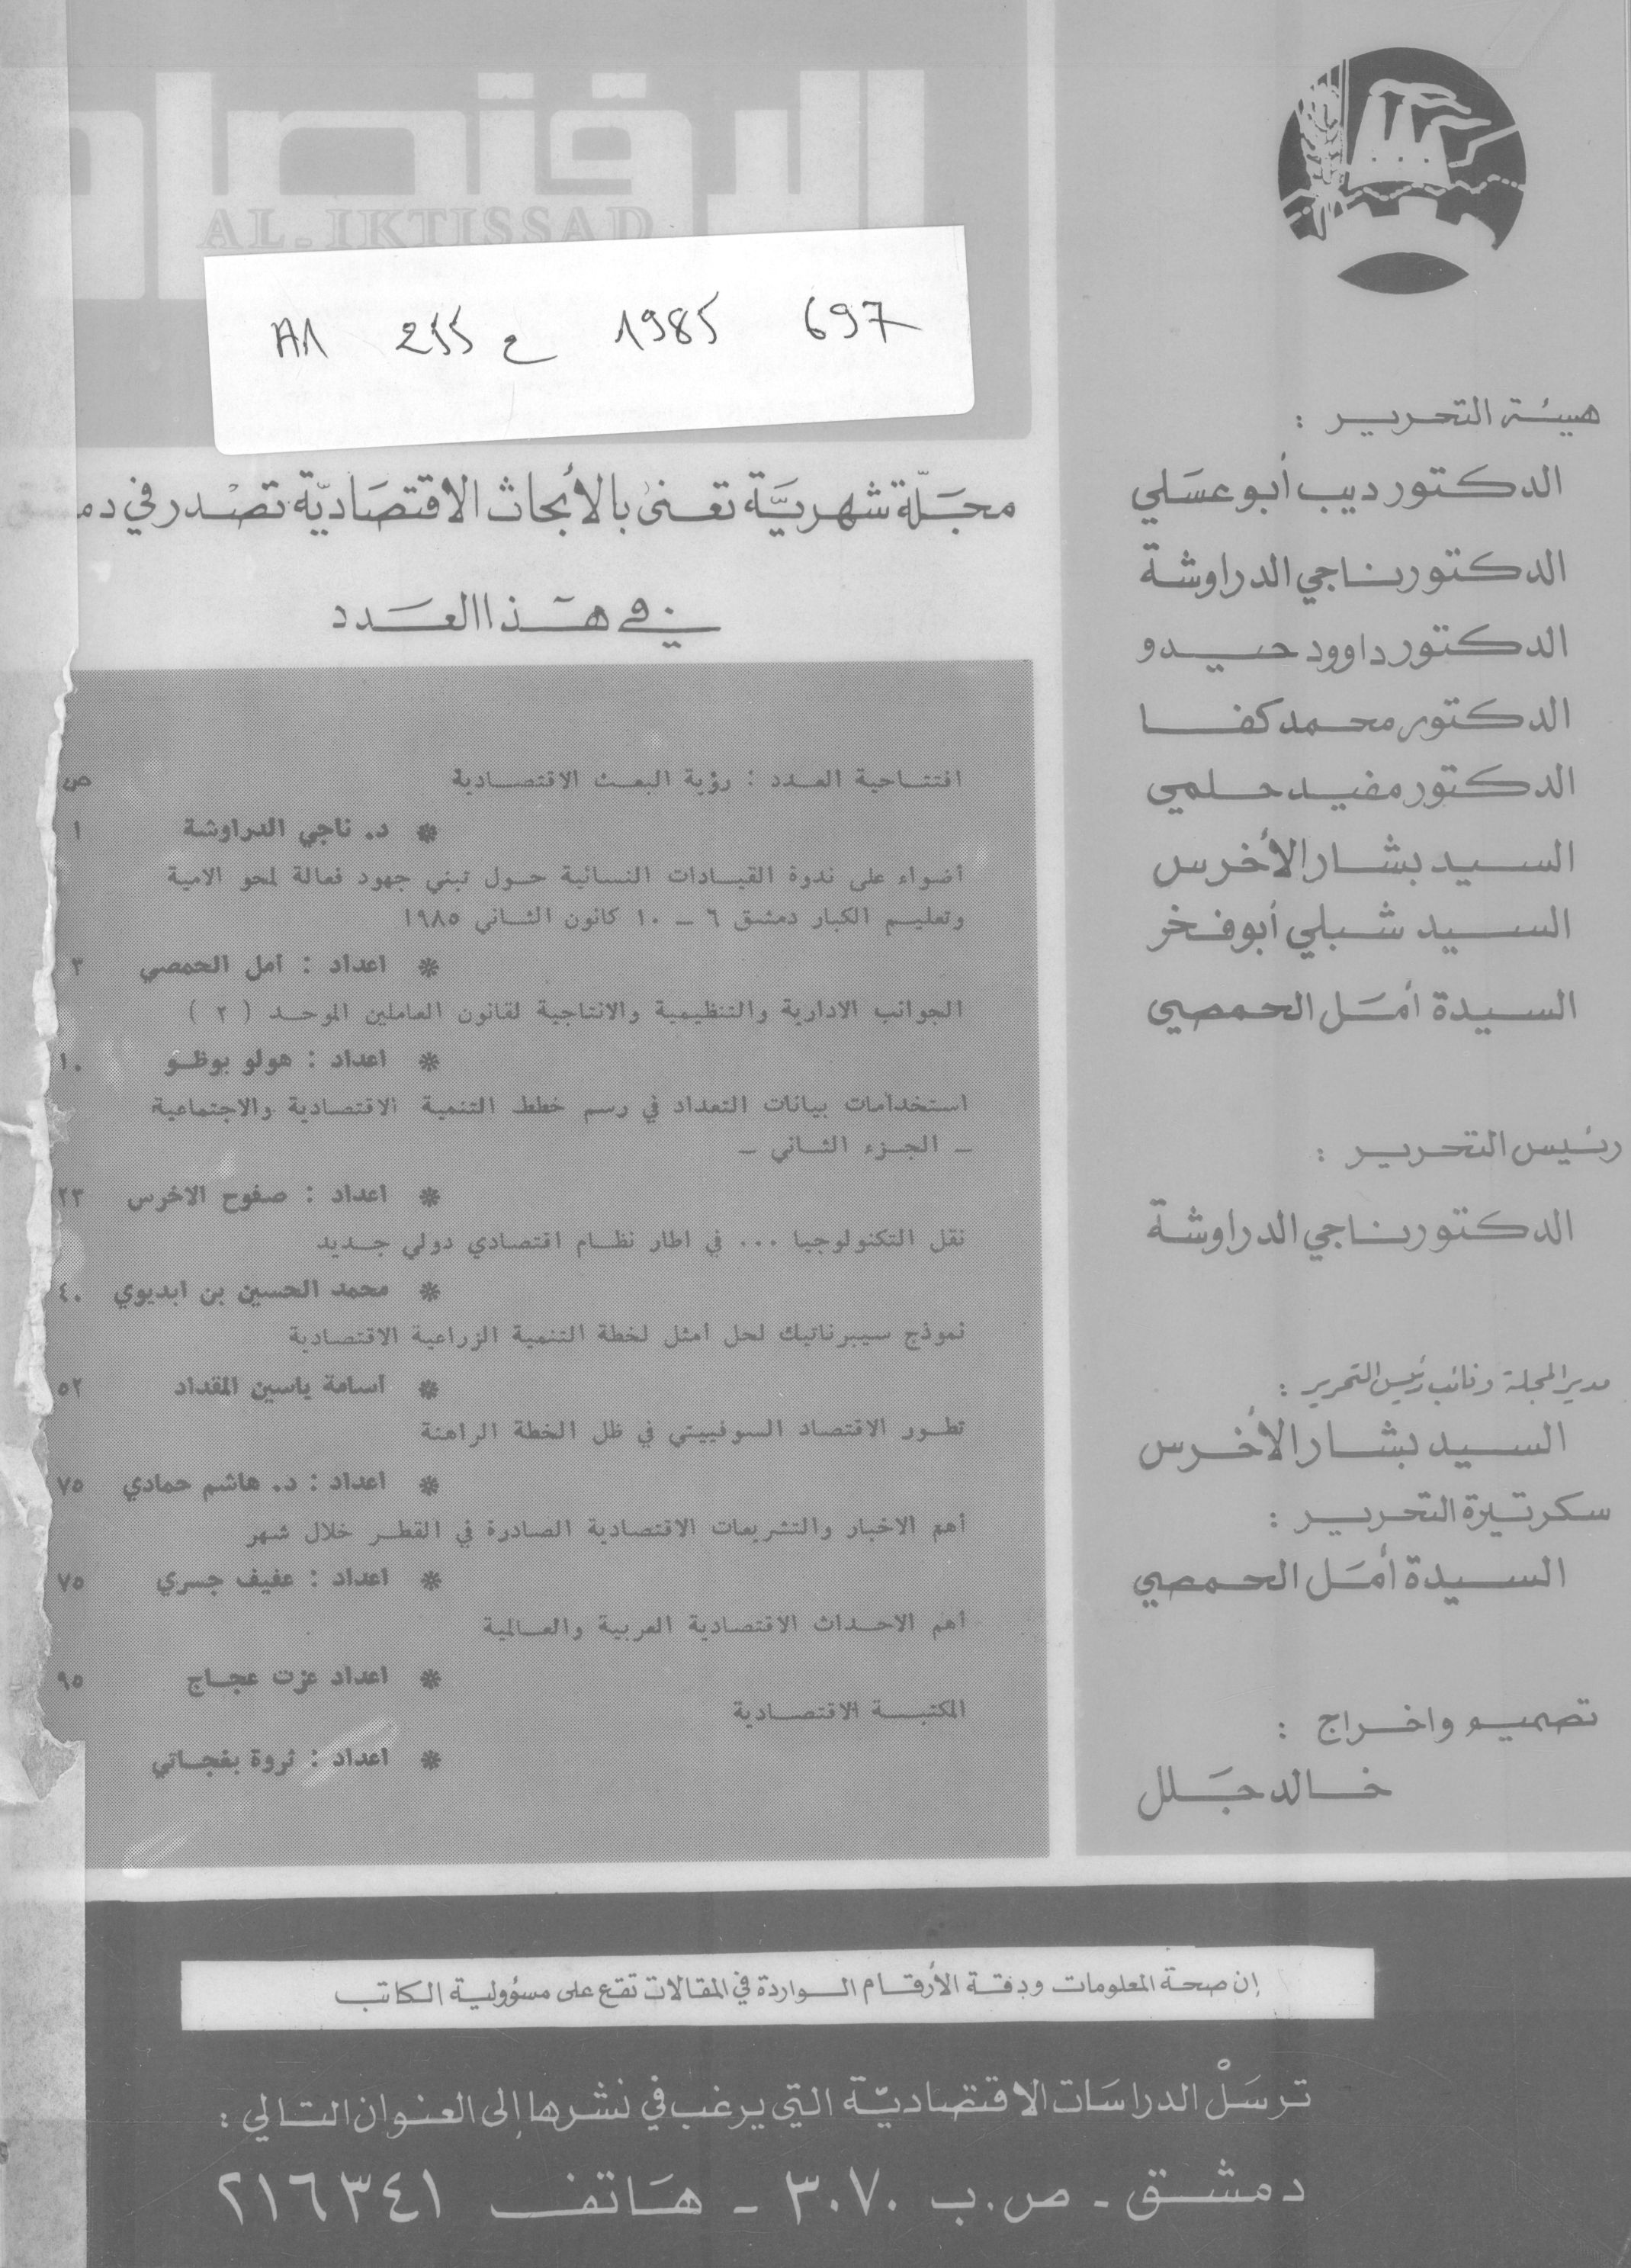 الاقتصاد
AL-IKTISSAD
A1 255 ع 1985 697
مجلة شهرية تعنى بالأبحاث الاقتصادية تصدر في
في هذا العدد
ص
افتتاحية العدد : رؤية البعث الاقتصادية
* د. ناجي الدراوشة ١
أضواء على ندوة القيادات النسائية حول تبني جهود فعالة لمحو الامية
وتعليم الكبار دمشق ٦ - ١٠ كانون الثاني ١٩٨٥
* اعداد : أمل الحمصي ٣
الجوانب الادارية والتنظيمية والانتاجية لقانون العاملين الموحد ( ٢ )
* اعداد : هولو بوظو ١٠
استخدامات بيانات التعداد في رسم خطط التنمية الاقتصادية والاجتماعية
- الجزء الثاني -
* اعداد : صفوح الاخرس ٢٣
نقل التكنولوجيا ... في اطار نظام اقتصادي دولي جديد
* محمد الحسين بن ابديوي ٤٠
نموذج سيبرناتيك لحل أمثل لخطة التنمية الزراعية الاقتصادية
* أسامة ياسين المقداد ٥٢
تطور الاقتصاد السوفييتي في ظل الخطة الراهنة
* اعداد : د. هاشم حمادي ٧٥
أهم الاخبار والتشريعات الاقتصادية الصادرة في القطر خلال شهر
* اعداد : عفيف جسري ٧٥
أهم الاحداث الاقتصادية العربية والعالمية
* اعداد عزت عجاج ٩٥
المكتبة الاقتصادية
* اعداد : ثروة بغجاتي
هيئة التحرير :
الدكتور ديب أبو عسلي
الدكتور ناجي الدراوشة
الدكتور داوود حيدو
الدكتور محمد كفا
الدكتور مفيد حلمي
السيد بشار الأخرس
السيد شبلي أبو فخر
السيدة أمل الحمصي
رئيس التحرير :
الدكتور ناجي الدراوشة
مدير المجلة ونائب رئيس التحرير :
السيد بشار الأخرس
سكرتيرة التحرير :
السيدة أمل الحمصي
تصميم واخراج :
خالد جلل
إن صحة المعلومات ودقة الأرقام الواردة في المقالات تقع على مسؤولية الكاتب
ترسل الدراسات الاقتصادية التي يرغب في نشرها إلى العنوان التالي :
دمشق - ص . ب ٣٠٧٠ - هاتف ٢١٦٣٤١